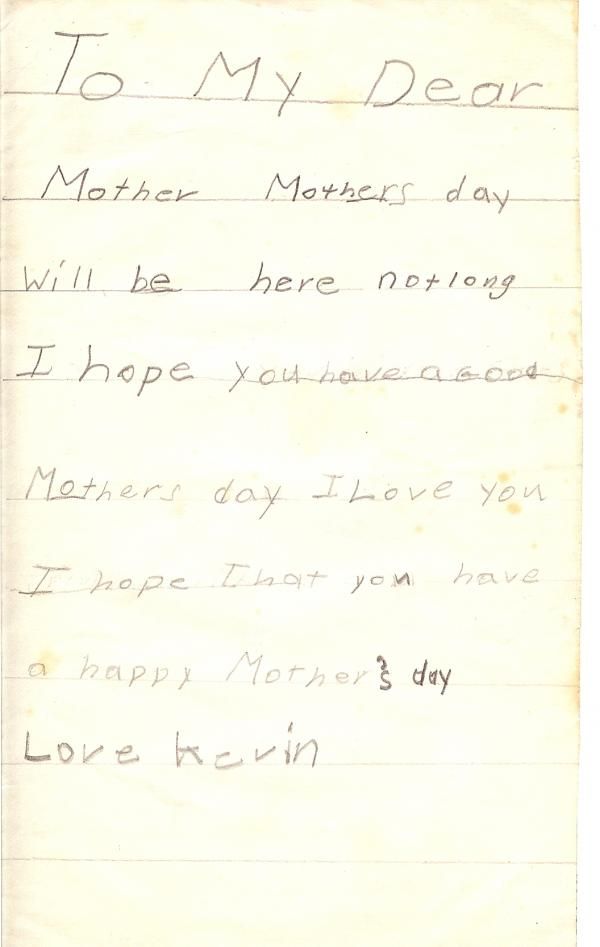 To My Dear
Mother Mothers day
Will be here notlong
I hope you have a Good
Mothers day I Love you
I hope That you have
a happy Mother's day
Love Kevin